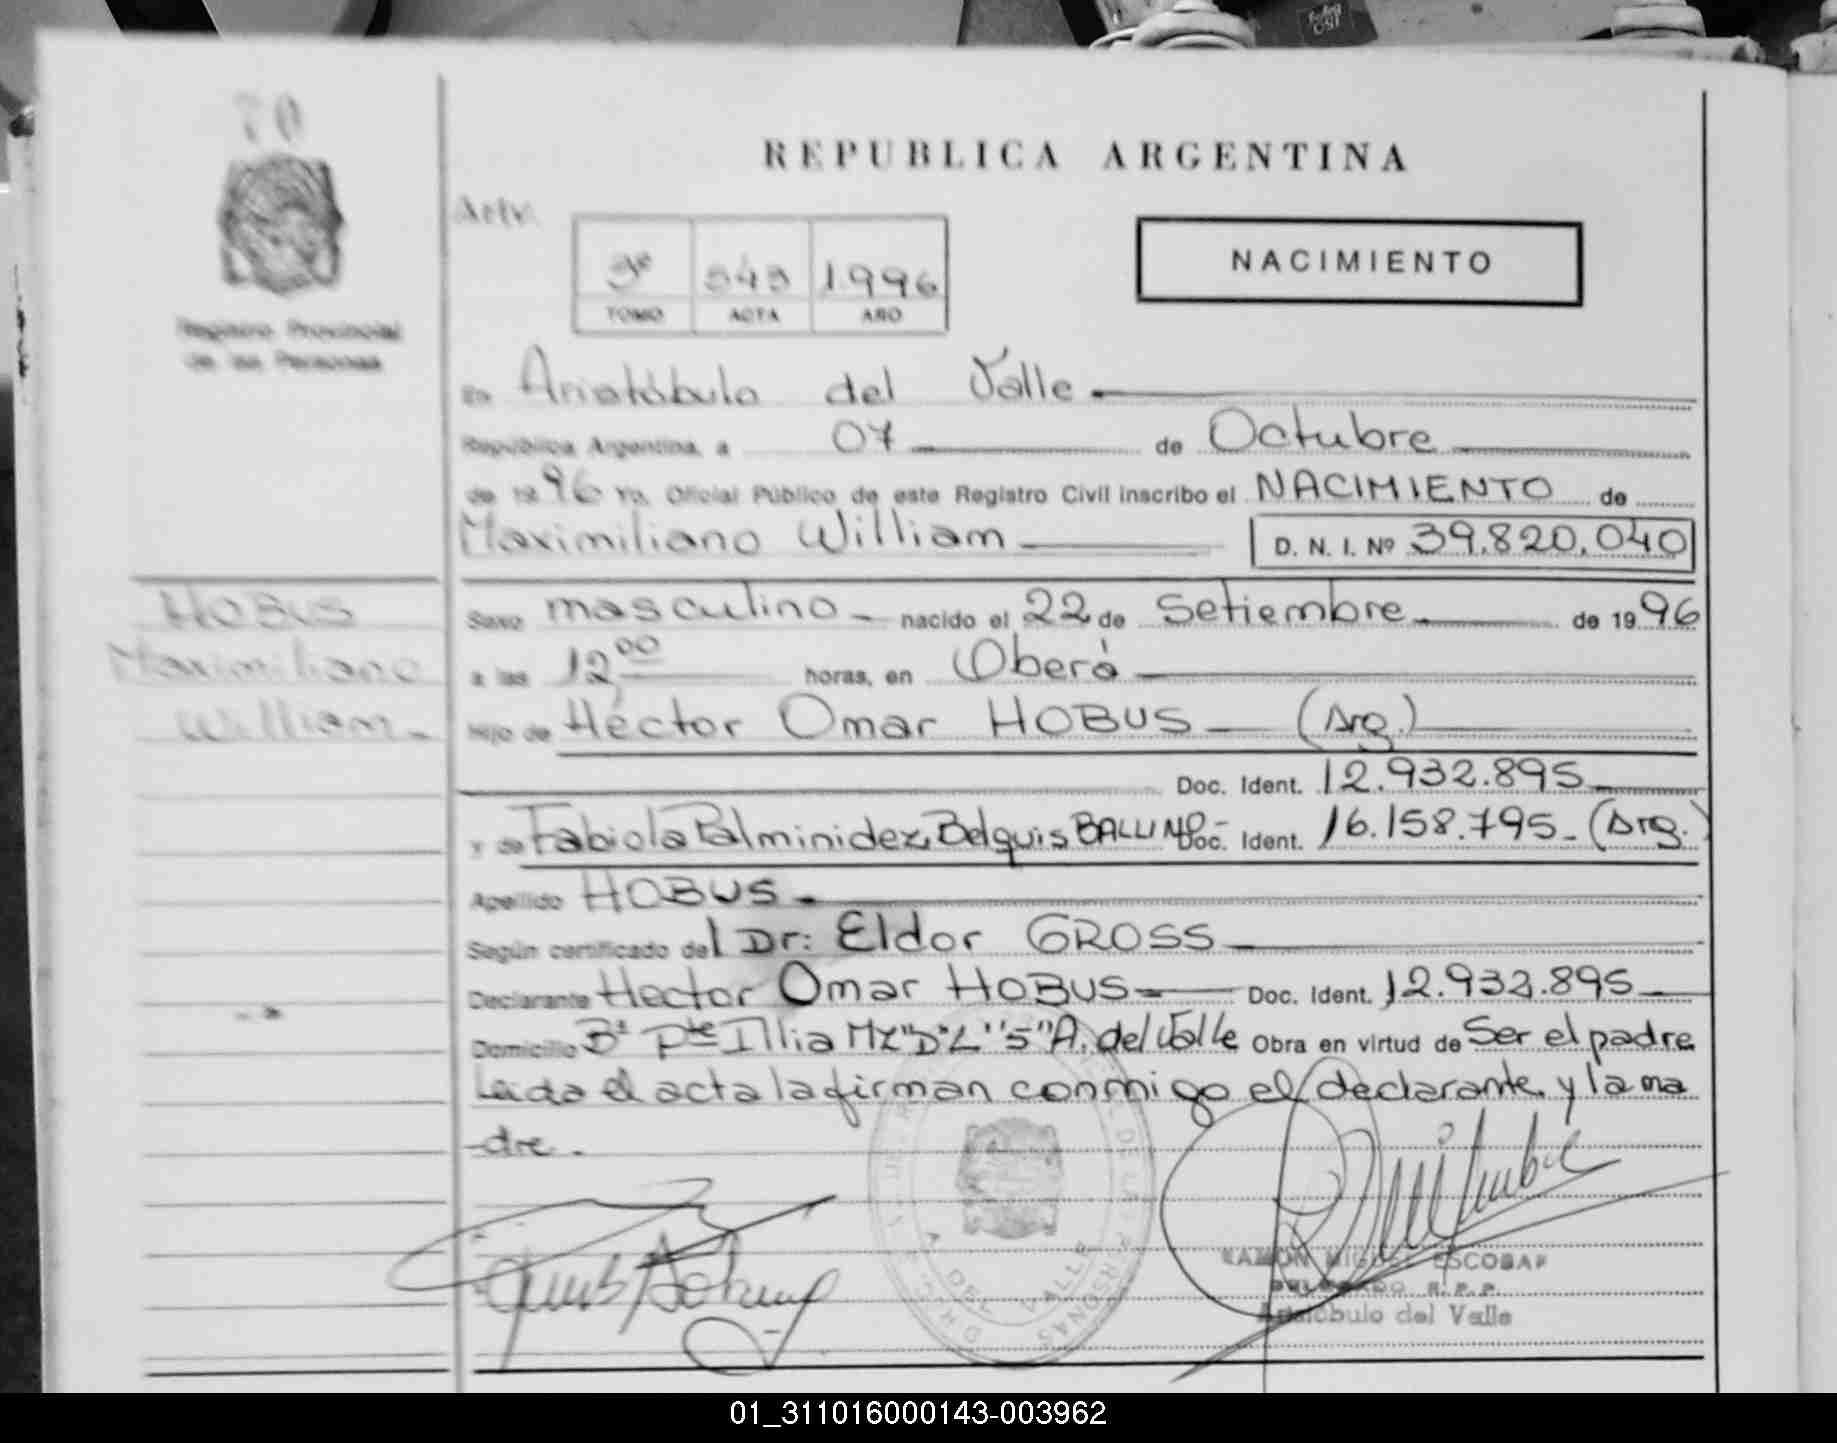 70
REPUBLICA ARGENTINA
Registro Provincial
de las Personas
3º 543 1.996
TOMO ACTA AÑO
NACIMIENTO
En Aristóbulo del Valle
República Argentina, a 07 de Octubre
de 1996 Yo, Oficial Público de este Registro Civil inscribo el NACIMIENTO de
Maximiliano William D. N. I. Nº 39.820.040
HOBUS
Maximiliano
William.-
Sexo masculino nacido el 22 de Setiembre de 1996
a las 12,00 horas, en Oberá
Hijo de Héctor Omar HOBUS (Arg.)
Doc. Ident. 12.932.895
y de Fabiola Palminidez Belquis BALLINO- Doc. Ident. 16.158.795- (Arg.)
Apellido HOBUS.
Según certificado del Dr: Eldor GROSS
Declarante Hector Omar HOBUS Doc. Ident. 12.932.895
Domicilio Bº Pte Illia Mz"D"L"5"A. del Valle Obra en virtud de Ser el padre
Leida el acta la firman conmigo el declarante y la ma
-dre.
A. DEL VALLE
RAMON MIGUEL ESCOBAR
DELEGADO R.P.P.
Aristóbulo del Valle
01_311016000143-003962